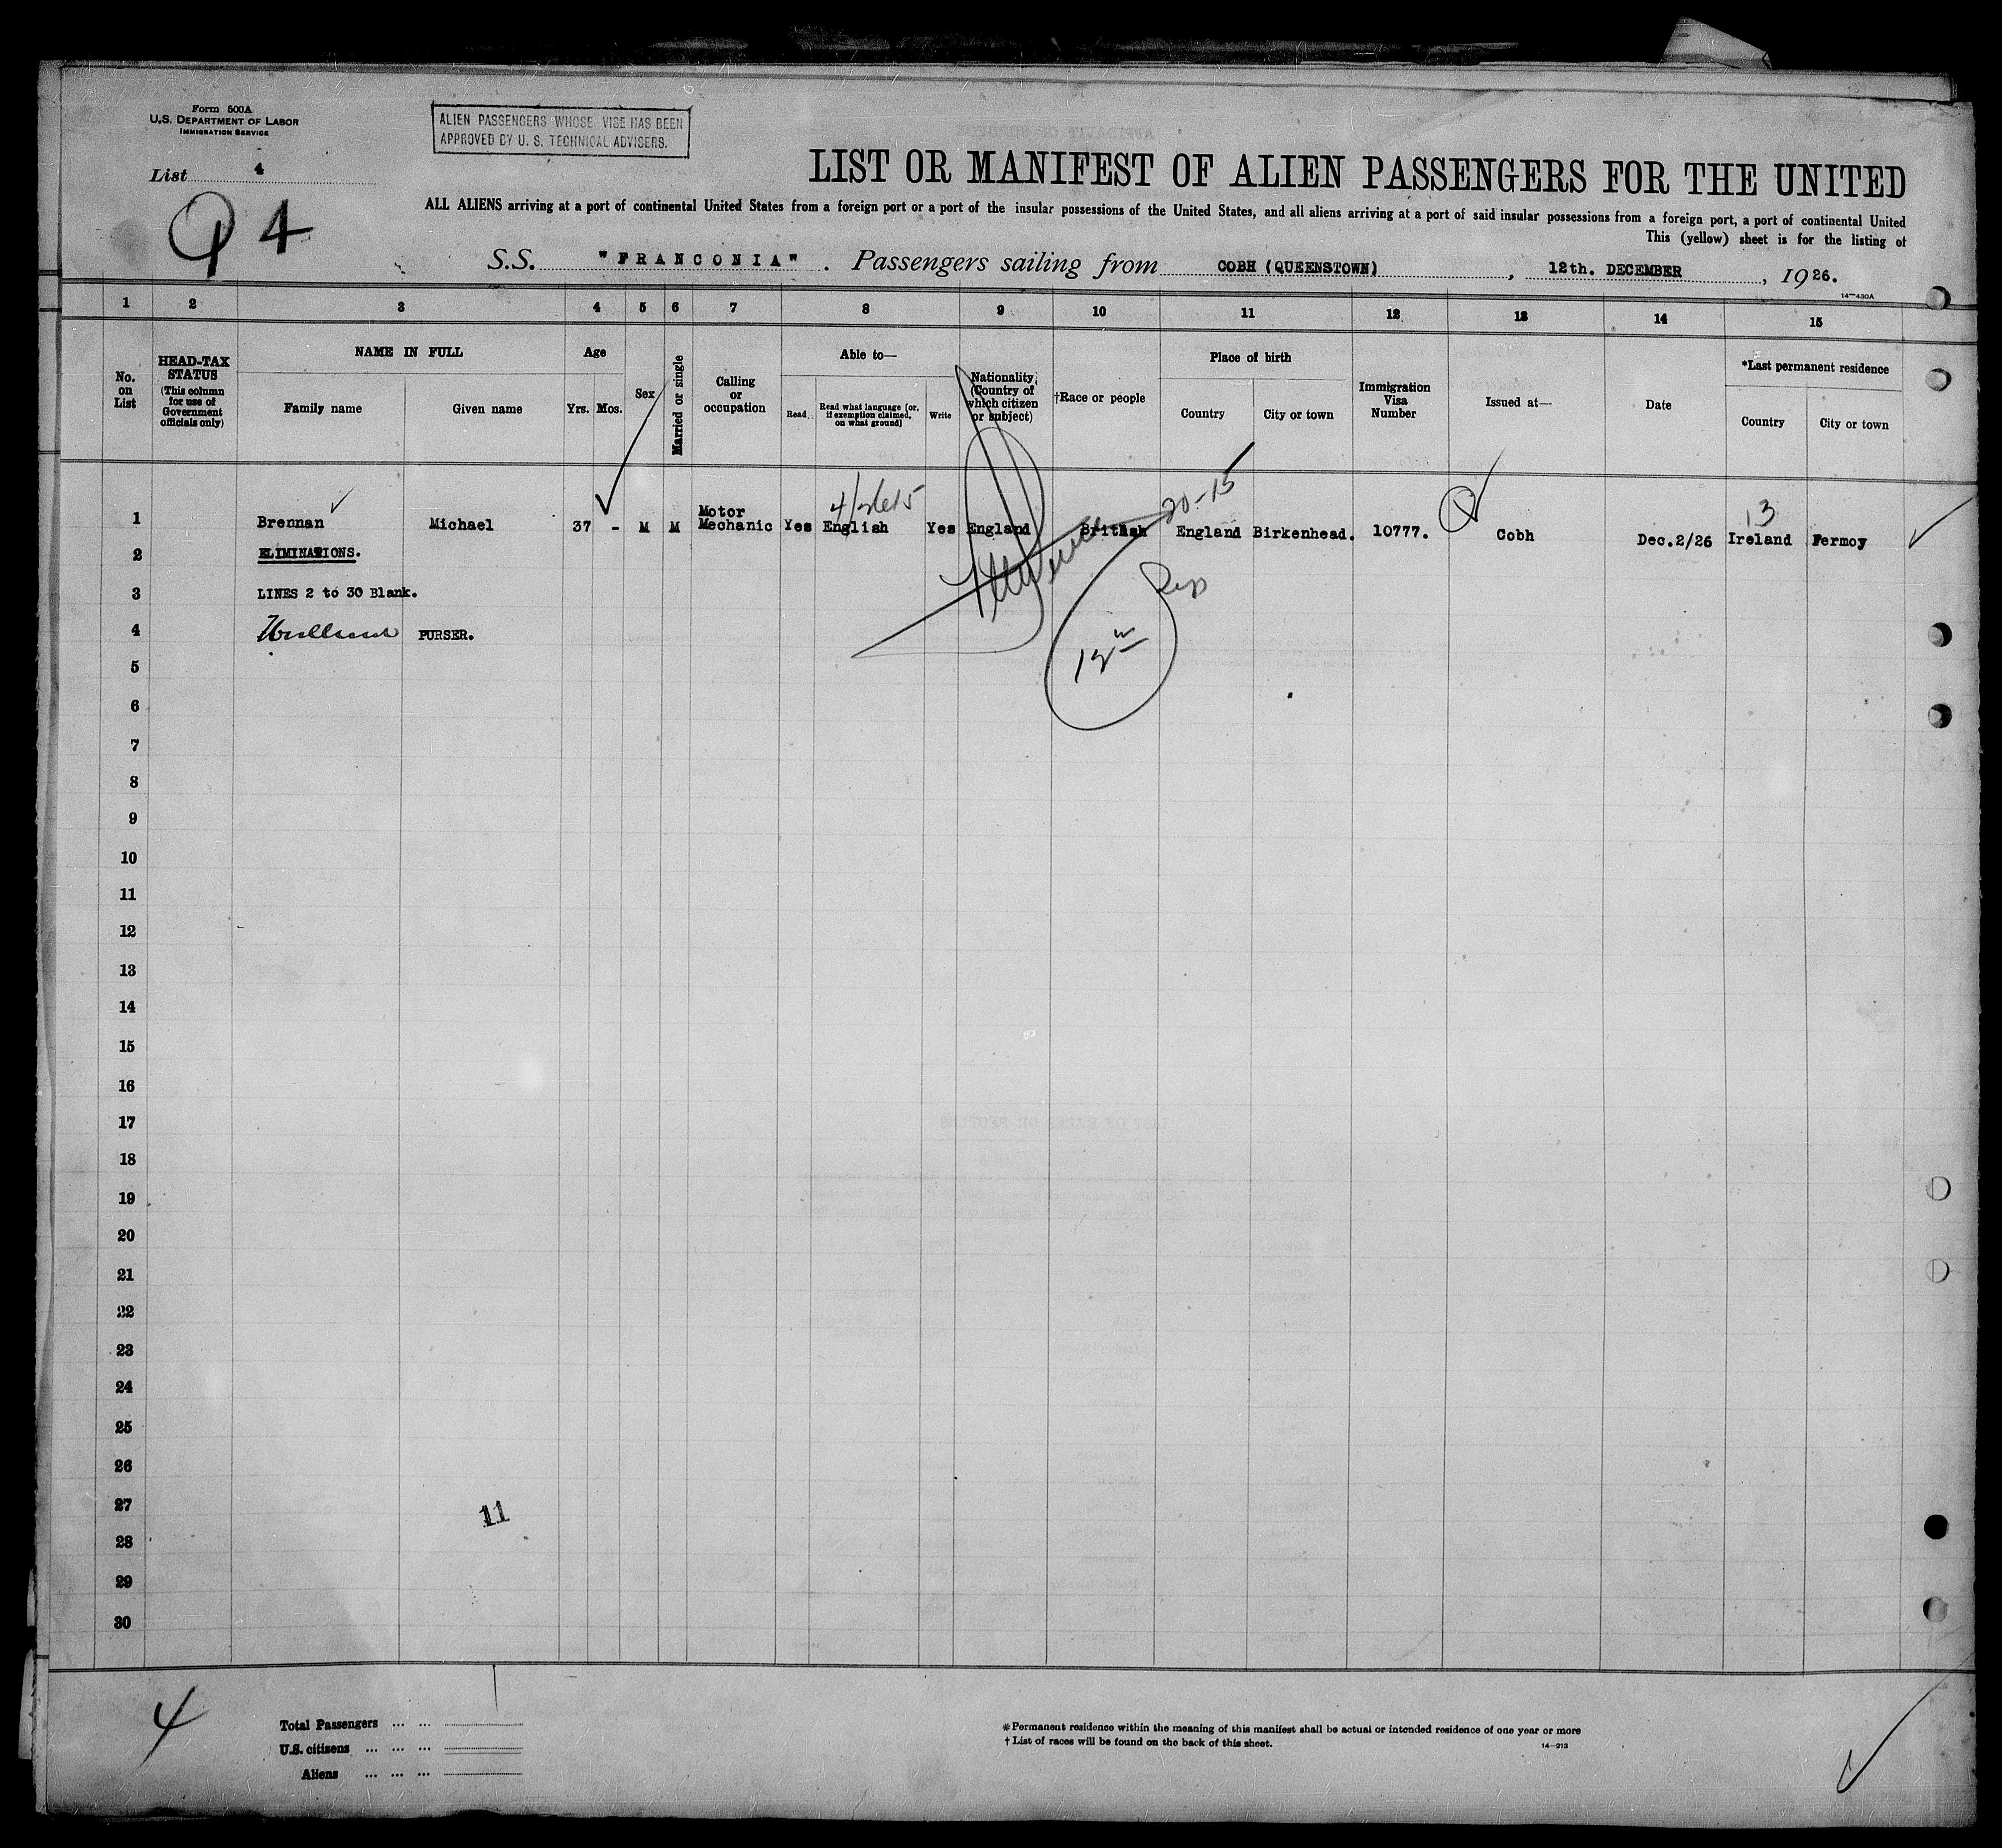 Form 500A
U.S. DEPARTMENT OF LABOR
IMMIGRATION SERVICE
ALIEN PASSENGERS WHOSE VISE HAS BEEN
APPROVED BY U. S. TECHNICAL ADVISERS.
List 4
94
LIST OR MANIFEST OF ALIEN PASSENGERS FOR THE UNITED
ALL ALIENS arriving at a port of continental United States from a foreign port or a port of the insular possessions of the United States, and all aliens arriving at a port of said insular possessions from a foreign port, a port of continental United
This (yellow) sheet is for the listing of
S.S. "FRANCONIA". Passengers sailing from COBH (QUEENSTOWN), 12th. DECEMBER, 1926.
14—430A
1 2 3 4 5 6 7 8 9 10 11 12 13 14 15
No. on List
HEAD-TAX STATUS (This column for use of Government officials only)
NAME IN FULL
Family name Given name
Age
Yrs. Mos.
Sex
Married or single
Calling or occupation
Able to—
Read Read what language [or, if exemption claimed, on what ground] Write
Nationality. (Country of which citizen or subject)
†Race or people
Place of birth
Country City or town
Immigration Visa Number
Issued at—
Date
*Last permanent residence
Country City or town
20-15
13
1 Brennan Michael 37 - M M Motor Mechanic Yes English Yes England British England Birkenhead. 10777. Cobh Dec.2/26 Ireland Fermoy
2 ELIMINATIONS.
3 LINES 2 to 30 Blank.
4 PURSER.
5
6
7
8
9
10
11
12
13
14
15
16
17
18
19
20
21
22
23
24
25
26
27
11
28
29
30
4
Total Passengers ... ...
U.S. citizens ... ... ...
Aliens ... ... ...
*Permanent residence within the meaning of this manifest shall be actual or intended residence of one year or more
† List of races will be found on the back of this sheet.
14—213